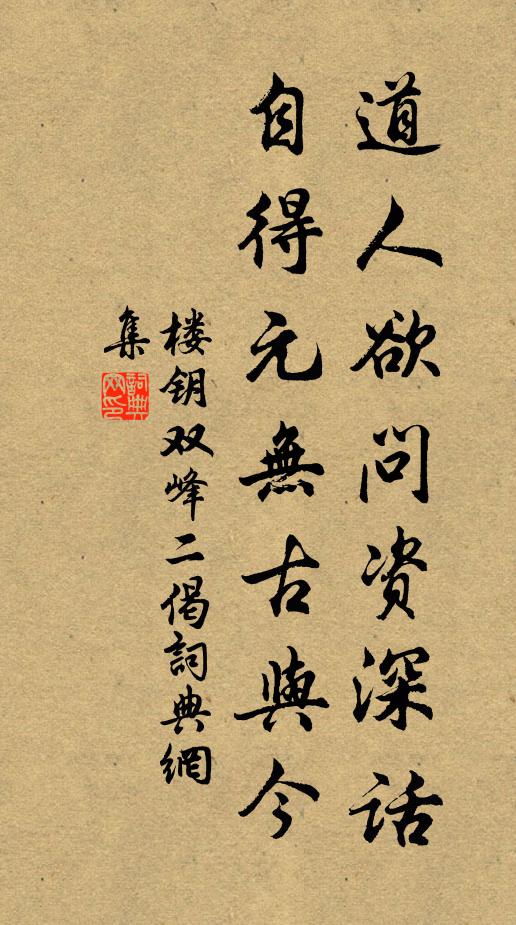 道人欲问资深话
自得元無古與今
楼钥双峰二偈詞典網
集
詞典网印